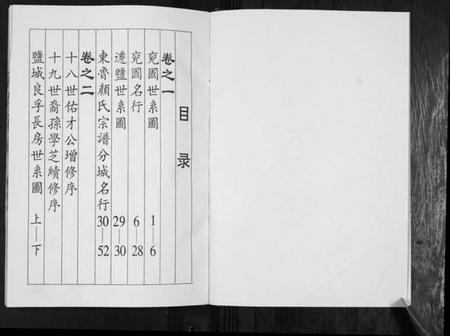 目录
卷之一
兖國世系圖 1—6
兖國名行 6 28
遷鹽世系圖 29—30
東魯顏氏宗譜分城名行 30—52
卷之二
十八世佑才公增修序
十九世裔孫學芝續修序
鹽城良孚長房世系圖 上—下